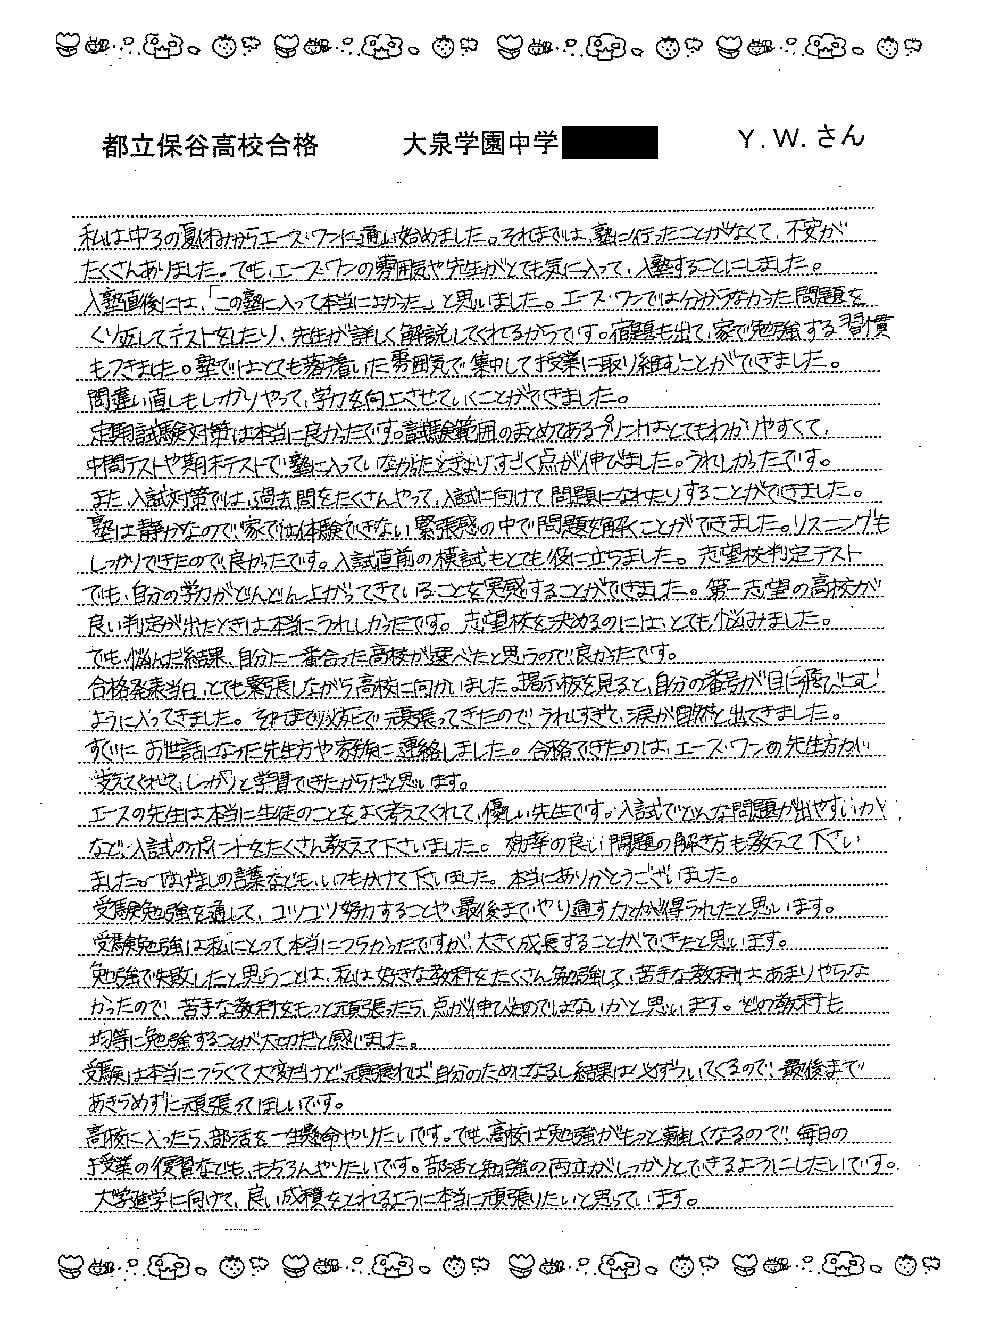 都立保谷高校合格 大泉学園中学 Y.W.さん
私は中3の夏休みからエース・ワンに通い始めました。それまでは、塾に行ったことがなくて、不安が
たくさんありました。でも、エース・ワンの雰囲気や先生がとても気に入って、入塾することにしました。
入塾直後には、「この塾に入って本当によかった」と思いました。エース・ワンでは分からなかった問題を
くり返してテストをしたり、先生が詳しく解説してくれるからです。宿題も出て、家で勉強する習慣
もつきました。塾ではとても落ち着いた雰囲気で集中して授業に取り組むことができました。
間違い直しもしっかりやって、学力を向上させていくことができました。
定期試験対策は本当に良かったです。試験範囲のまとめであるプリントはとてもわかりやすくて、
中間テストや期末テストで塾に入っていなかったときよりすごく点が伸びました。うれしかったです。
また、入試対策では、過去問をたくさんやって、入試に向けて問題になれたりすることができました。
塾は静かなので、家では体験できない緊張感の中で問題を解くことができました。リスニングも
しっかりできたので良かったです。入試直前の模試もとても役に立ちました。志望校判定テスト
でも、自分の学力がどんどん上がってきていることを実感することができました。第一志望の高校が
良い判定が出たときは本当にうれしかったです。志望校を決めるのには、とても悩みました。
でも、悩んだ結果、自分に一番合った高校が選べたと思うので良かったです。
合格発表当日、とても緊張しながら高校に向かいました。掲示板を見ると、自分の番号が目に飛び込む
ように入ってきました。それまで必死で頑張ってきたのでうれしすぎて、涙が自然と出てきました。
すぐにお世話になった先生方や家族に連絡しました。合格できたのは、エース・ワンの先生方が
支えてくれて、しっかりと学習できたからだと思います。
エースの先生は本当に生徒のことをよく考えてくれて、優しい先生です。入試でどんな問題が出やすいか、
など、入試のポイントをたくさん教えて下さいました。効率の良い問題の解き方も教えて下さい
ました。はげましの言葉なども、いつもかけて下さいました。本当にありがとうございました。
受験勉強を通して、コツコツ努力することや、最後までやり通す力とかが得られたと思います。
受験勉強は私にとって本当につらかったですが大きく成長することができたと思います。
勉強で失敗したと思うことは、私は好きな教科をたくさん勉強して、苦手な教科はあまりやらな
かったので、苦手な教科をもっと頑張ったら、点が伸びたのではないかと思います。どの教科も
均等に勉強することが大切だと感じました。
受験は本当につらくて大変だけど、頑張れば自分のためになるし結果は必ずついてくるので、最後まで
あきらめずに頑張ってほしいです。
高校に入ったら、部活を一生懸命やりたいです。でも、高校は勉強がもっと難しくなるので毎日の
授業の復習なども、もちろんやりたいです。部活と勉強の両立がしっかりとできるようにしたいです。
大学進学に向けて、良い成績をとれるように本当に頑張りたいと思っています。